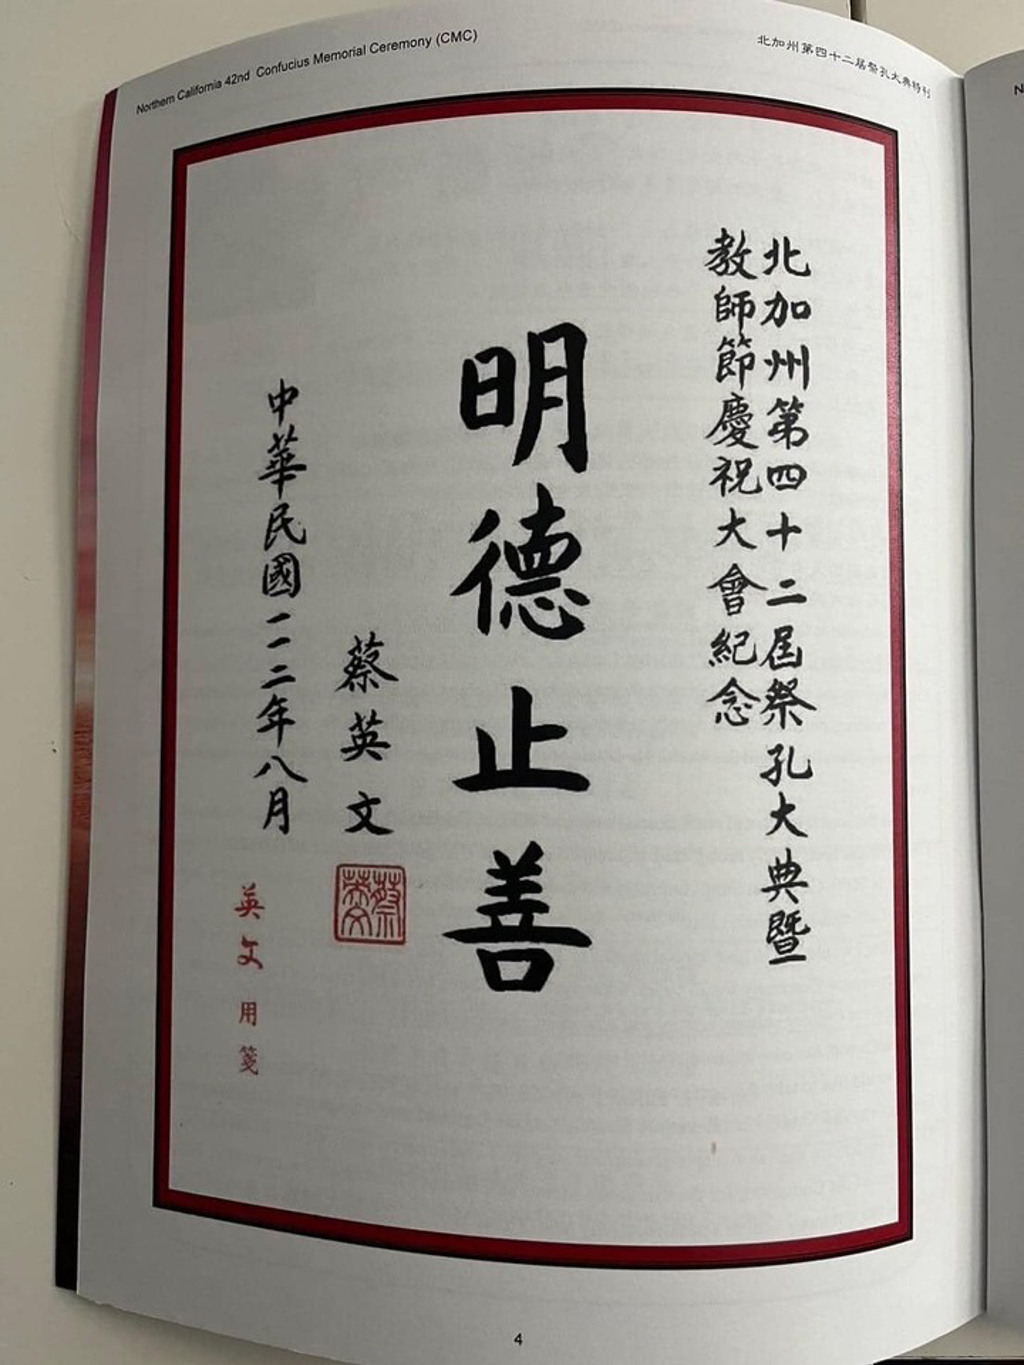 Northern California 42nd Confucius Memorial Ceremony (CMC)
北加州第四十二屆祭孔大典特刊
北加州第四十二屆祭孔大典暨
教師節慶祝大會紀念
明德止善
蔡英文
蔡英文
中華民國一一二年八月
英文用箋
4